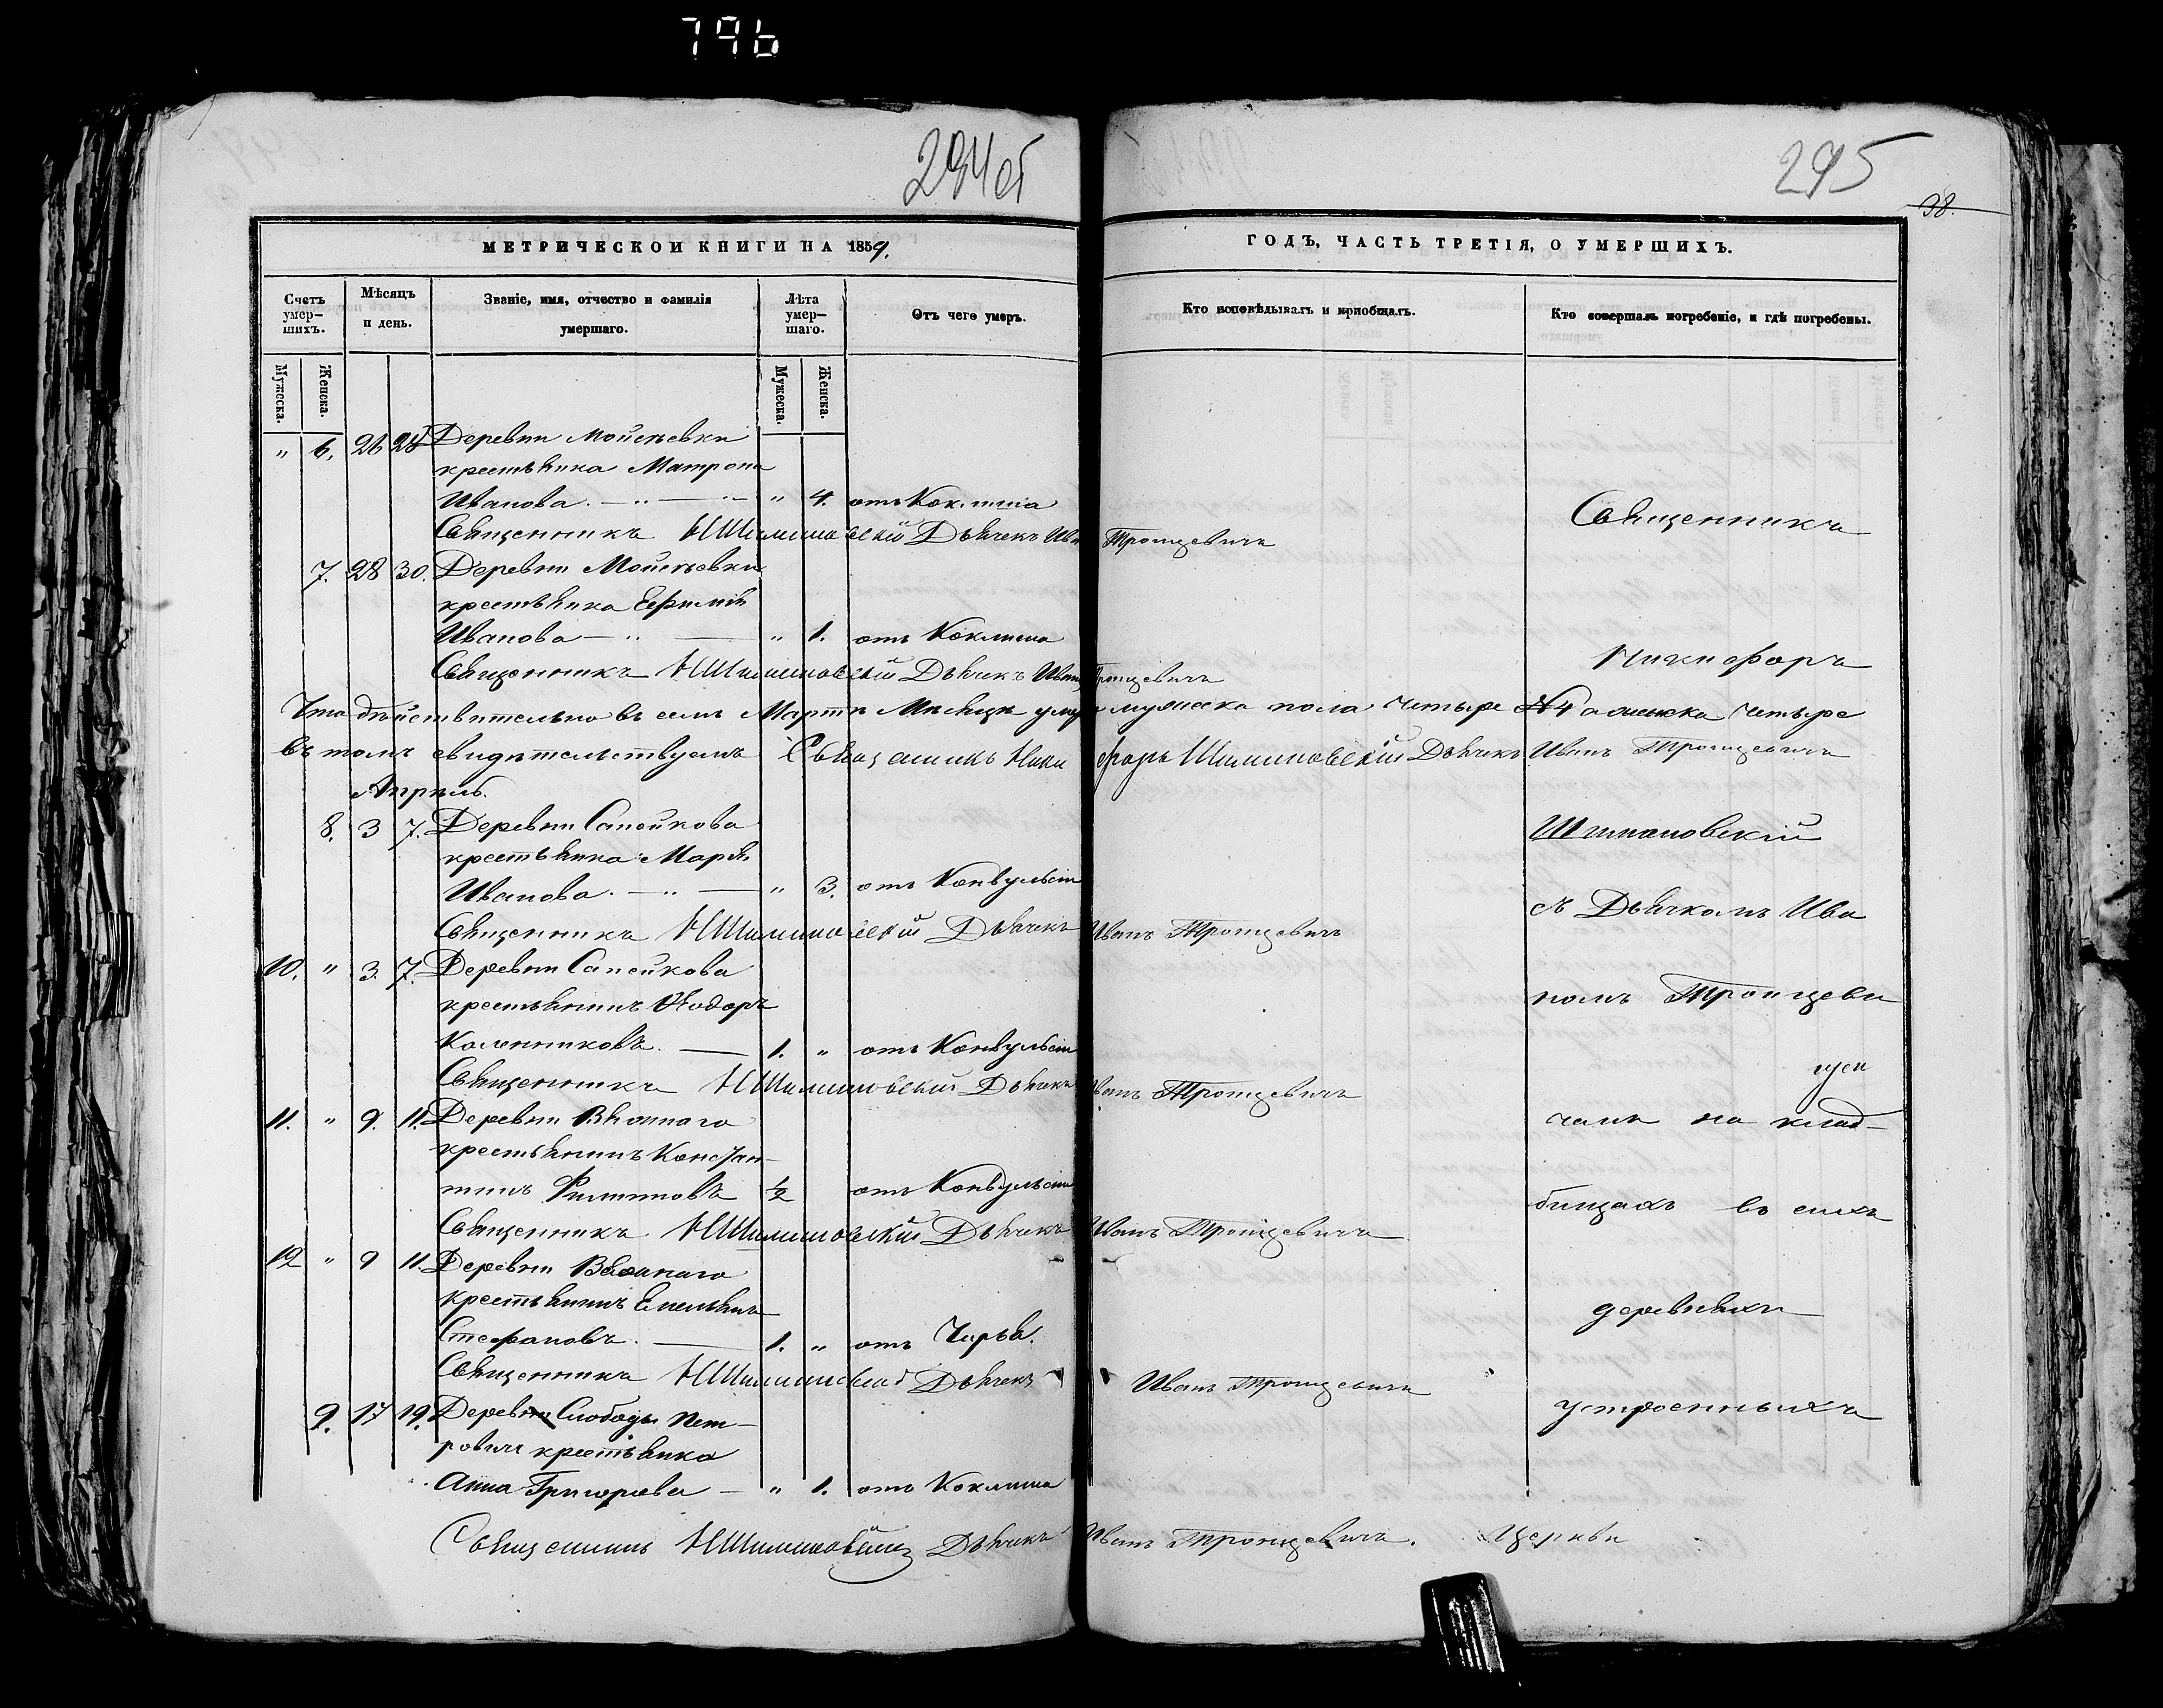 796
294об
295
38.
МЕТРИЧЕСКОЙ КНИГИ НА 1859.
ГОДЪ, ЧАСТЬ ТРЕТІЯ, О УМЕРШИХЪ.
Счетъ умер-шихъ.
Мѣсяцъ и день.
Званіе, имя, отчество и фамилія умершаго.
Лѣта умер-шаго.
Отъ чего умеръ.
Кто исповѣдывалъ и пріобщалъ.
Кто совершалъ погребеніе, и гдѣ погребены.
Мужеска.
Женска.
Мужеска.
Женска.
" 6. 26 28 Деревни Мойсѣевки
крестьянка Матрона
Иванова. — " — " 4. отъ Коклюша
Священникъ НШимановскій Дьячекъ Иванъ Троицевичъ
7. 28 30. Деревни Мойсѣевки
крестьянка Ефимія
Иванова — " — " 1. отъ Коклюша
Священникъ НШимановскій Дьячекъ Иванъ Троицевичъ
Что дѣйствительно въ семъ Мартѣ Мѣсяцѣ умерло мужеска пола четыре №4 а женска четыре
въ томъ свидѣтельствуемъ Священникъ Никифоръ Шимановскій Дьячекъ Иванъ Троицевичъ
Апрѣль.
8. 3 7. Деревни Сапейкова
крестьянка Марія
Иванова. — " — " 3. отъ Конвульсіи
Священникъ НШимановскій Дьячекъ Иванъ Троицевичъ
10. " 3. 7. Деревни Сапейкова
крестьянинъ Ѳеодоръ
Каленниковъ. — 1. " отъ Конвульсіи
Священникъ НШимановскій Дьячекъ Иванъ Троицевичъ
11. " 9. 11. Деревни
крестьянинъ Констан-
тинъ Филиповъ 1/2 отъ Конвульсіи
Священникъ НШимановскій Дьячекъ Иванъ Троицевичъ
12 " 9 11. Деревни
крестьянинъ Емельянъ
Стефановъ. — 1. " отъ
Священникъ НШимановскій Дьячекъ Иванъ Троицевичъ
9. 17 19. Деревни Слободы Пет-
ровичъ крестьянка
Анна Григорьева — " 1. отъ Коклюша
Священникъ НШимановскій Дьячекъ Иванъ Троицевичъ.
Священникъ
Никифоръ
Шимановскій
съ Дьячкомъ Ива
номъ Троицеви
чемъ на клад-
бищахъ въ сихъ
деревняхъ
устроенныхъ
Церкви